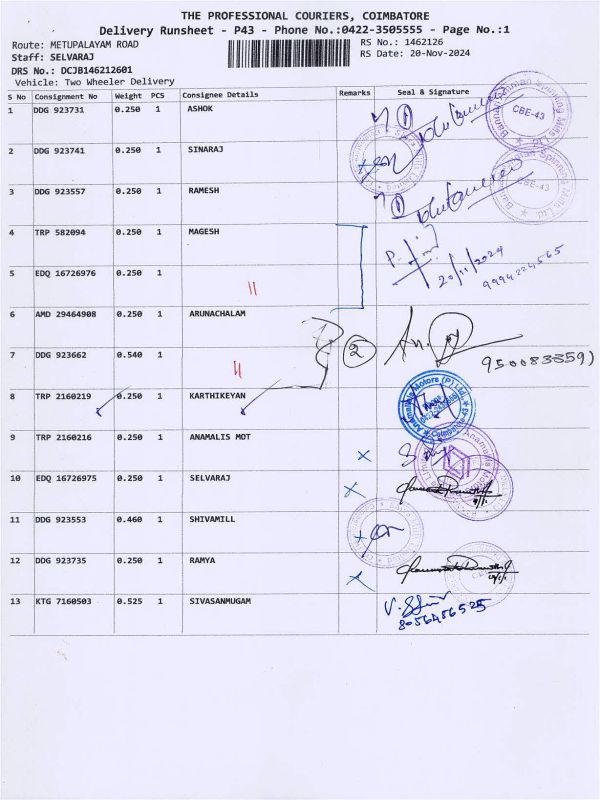 THE PROFESSIONAL COURIERS, COIMBATORE
Delivery Runsheet - P43 - Phone No.:0422-3505555 - Page No.:1
Route: METUPALAYAM ROAD
RS No.: 1462126
Staff: SELVARAJ
RS Date: 20-Nov-2024
DRS No.: DCJB146212601
Vehicle: Two Wheeler Delivery
S No Consignment No Weight PCS Consignee Details Remarks Seal & Signature
1 DDG 923731 0.250 1 ASHOK 1
CBE-43
2 DDG 923741 0.250 1 SINARAJ
CBE-43
3 DDG 923557 0.250 1 RAMESH 1
4 TRP 582094 0.250 1 MAGESH
20/11/2024
5 EDQ 16726976 0.250 1 11
9994224565
6 AMD 29464908 0.250 1 ARUNACHALAM
2
7 DDG 923662 0.540 1 11
8 TRP 2160219 0.250 1 KARTHIKEYAN
Anamallais Motors (P) Ltd.
9 TRP 2160216 0.250 1 ANAMALIS MOT
10 EDQ 16726975 0.250 1 SELVARAJ
11 DDG 923553 0.460 1 SHIVAMILL
12 DDG 923735 0.250 1 RAMYA
13 KTG 7160503 0.525 1 SIVASANMUGAM
8056456525